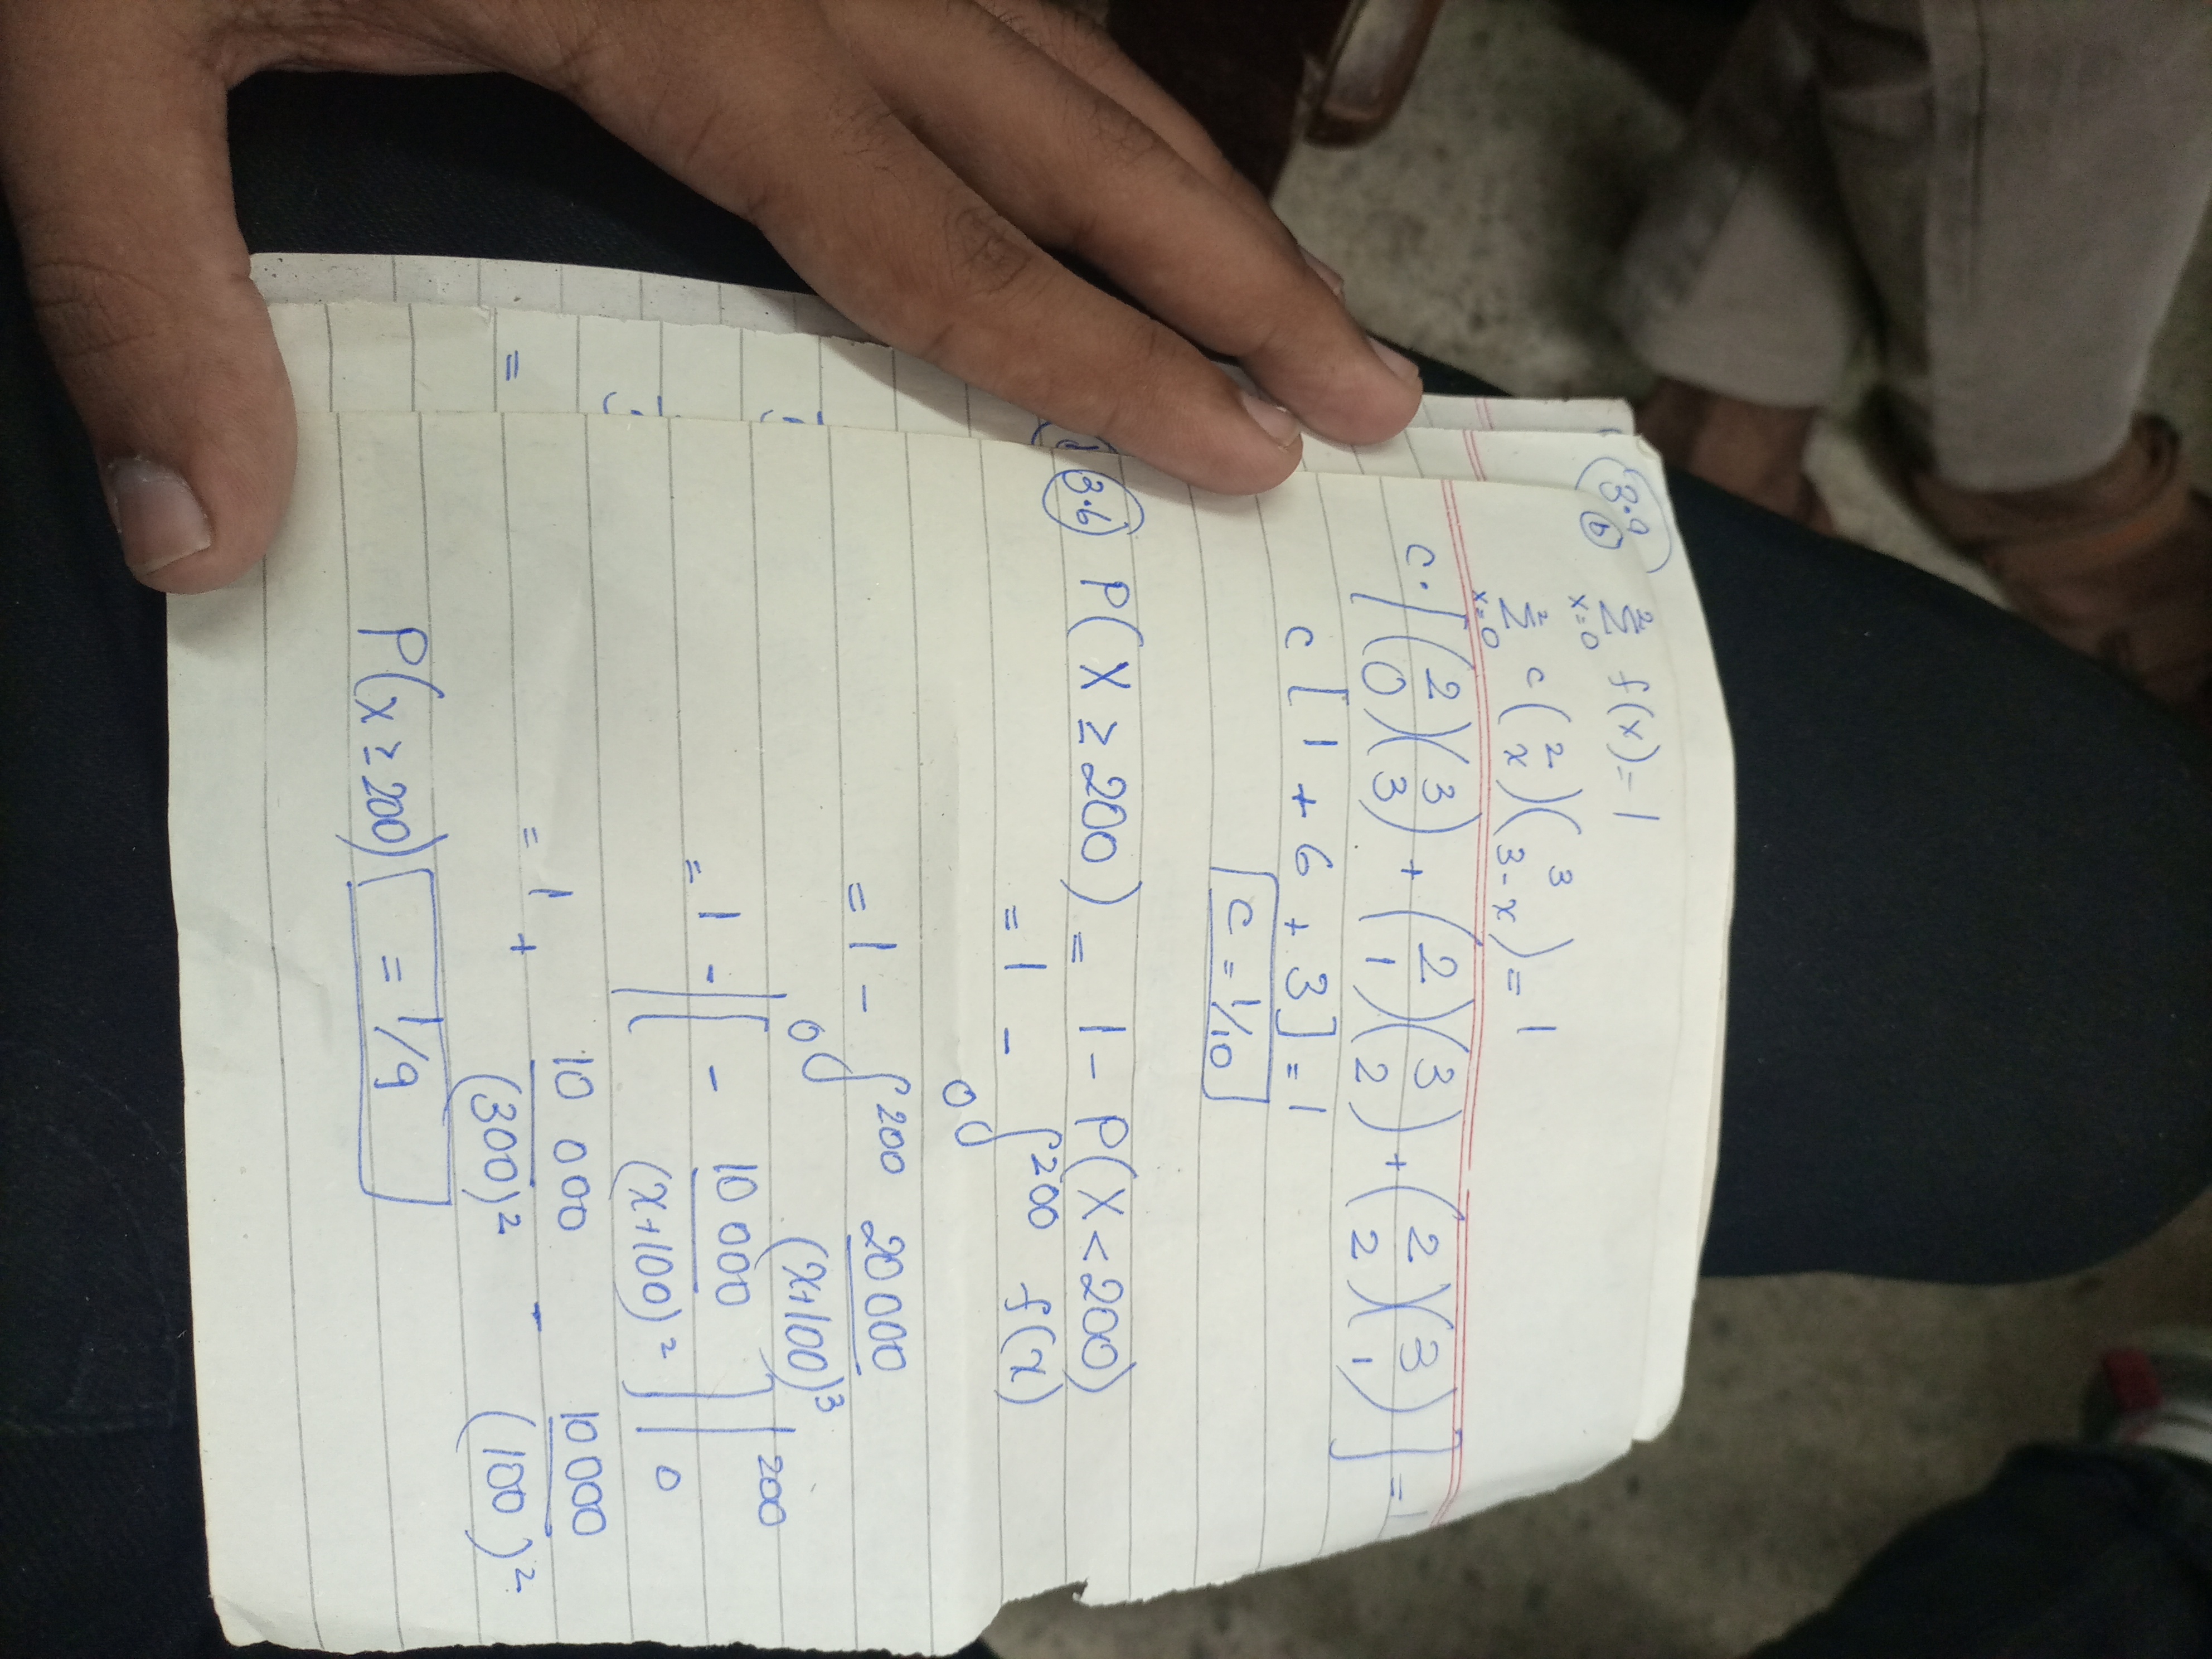 3.9 b
2 Σ x=0 f(x) = 1
2 Σ x=0 c (2 x)(3 3-x) = 1
c. [(2 0)(3 3) + (2 1)(3 2) + (2 2)(3 1)] = 1
c [1 + 6 + 3] = 1
c = 1/10
3.6 P(X ≥ 200) = 1 - P(X < 200)
= 1 - 0∫200 f(x)
= 1 - 0∫200 20000/(x+100)³
= 1 - |[- 10000/(x+100)²]|200 0
= 1 + 10 000/(300)² - 10000/(100)²
P(x ≥ 200) = 1/9
=